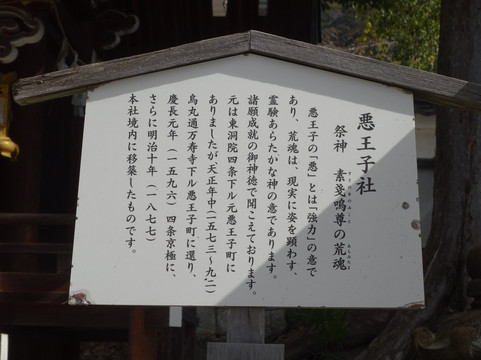 悪王子社
祭神　素戔嗚尊の荒魂
悪王子の「悪」とは「強力」の意で
あり、荒魂は、現実に姿を顕わす、
霊験あらたかな神の意であります。
諸願成就の御神徳で聞こえております。
元は東洞院四条下ル元悪王子町に
ありましたが、天正年中（一五七三〜九二）
烏丸通万寿寺下ル悪王子町に遷り、
慶長元年（一五九六）四条京極に、
さらに明治十年（一八七七）
本社境内に移築したものです。